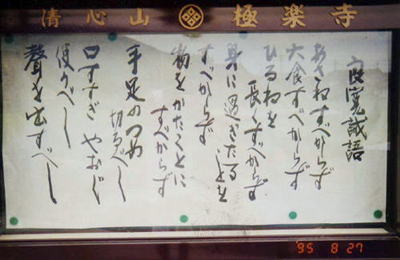 清心山 極楽寺
良寛誡語
あさねすべからず
大食すべからず
ひるねを
長くすべからず
身に過ぎたることを
すべからず
すべからず
手足のつめ
切るべし
口すすぎ やうじ
使うべし
聲を出すべし
'95 8 27